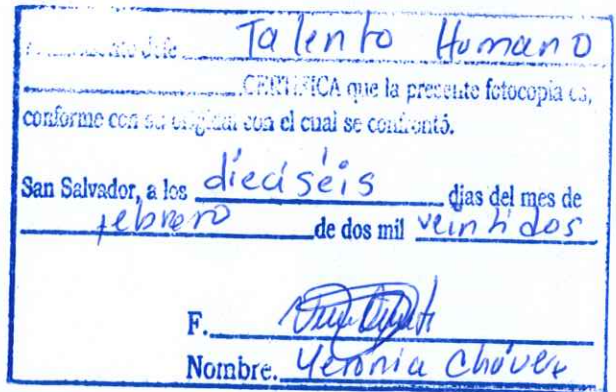 Talento Humano
CERTIFICA que la presente fotocopia es,
conforme con su original con el cual se confrontó.
San Salvador, a los dieciséis dias del mes de
febrero de dos mil veintidos
F.
Nombre. Veronia Chávez